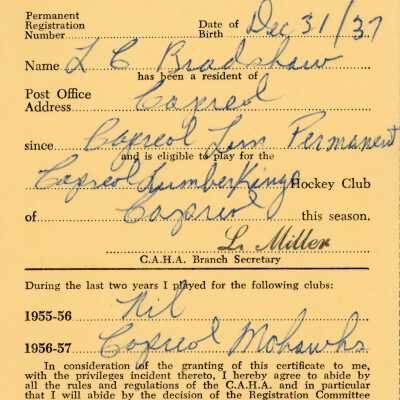 Permanent
Registration
Number
Date of
Birth Dec 31/37
Name L C Bradshaw
has been a resident of
Post Office
Address Capreol
since Capreol Permanent
and is eligible to play for the
Capreol Lumberkings Hockey Club
of Capreol this season.
L. Miller
C.A.H.A. Branch Secretary
During the last two years I played for the following clubs:
1955-56 Nil
1956-57 Capreol Mohawks
In consideration of the granting of this certificate to me,
with the privileges incident thereto, I hereby agree to abide by
all the rules and regulations of the C.A.H.A. and in particular
that I will abide by the decision of the Registration Committee